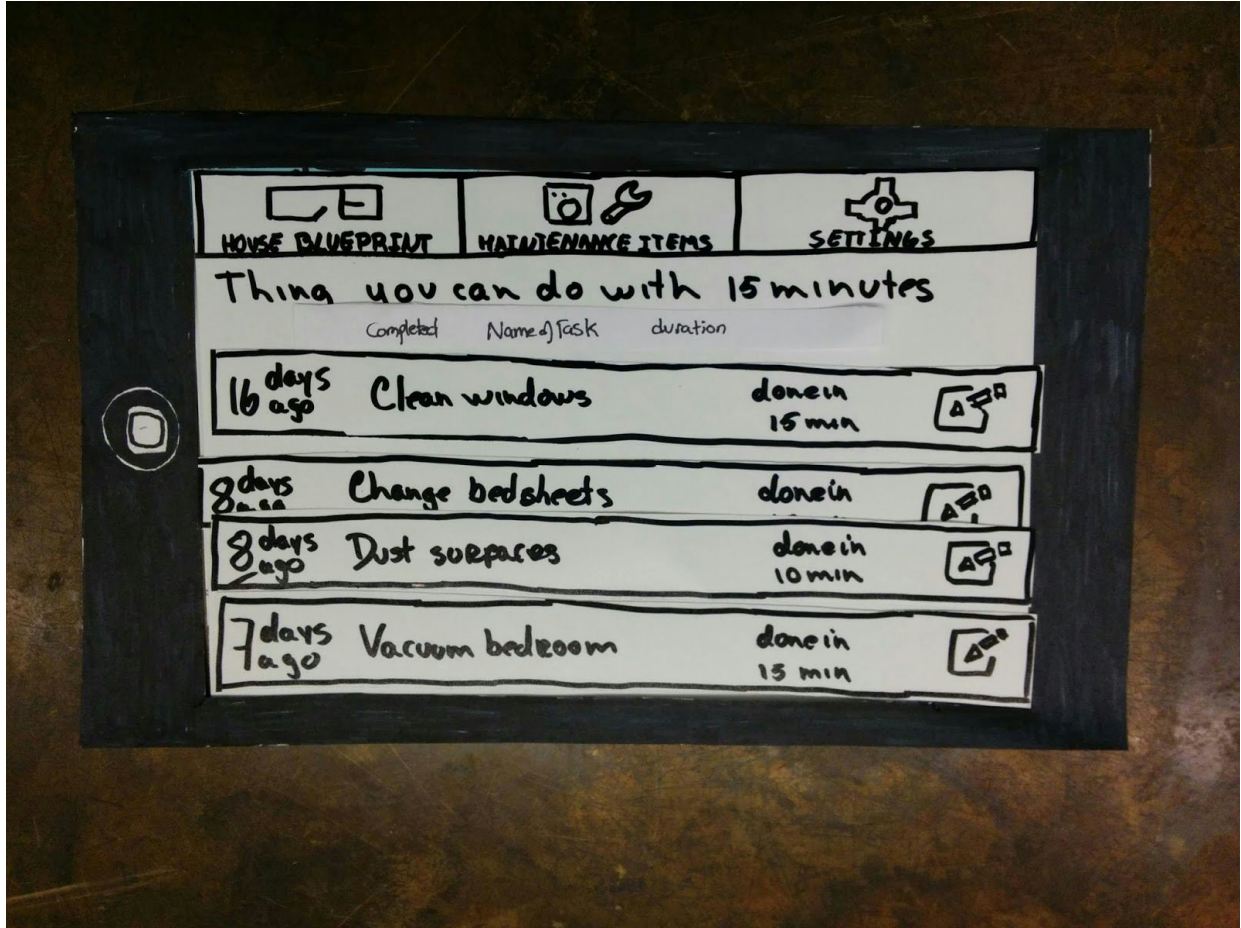 HOUSE BLUEPRINT
MAINTENANCE ITEMS
SETTINGS
Thing you can do with 15 minutes
Completed Name of Task duration
16 days ago
Clean windows
done in
15 min
8 days ago
Change bedsheets
done in
8 days ago
Dust surfaces
done in
10 min
7 days ago
Vacuum bedroom
done in
15 min